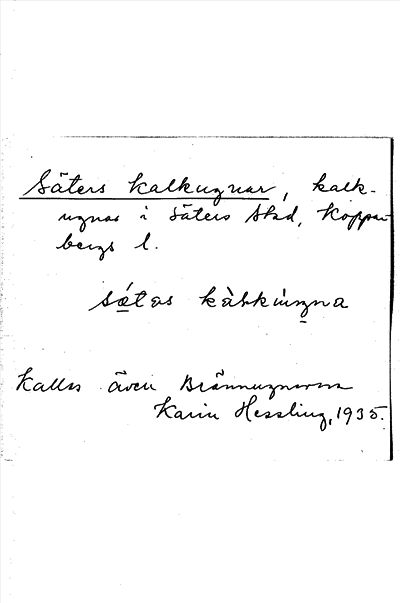 Säters kalkugnar, kalk-
ugnar i Säters stad, Koppar-
bergs l.
sǽtas kàḷkúŋna
Kallas även Brännugnarna
Karin Hessling, 1935.